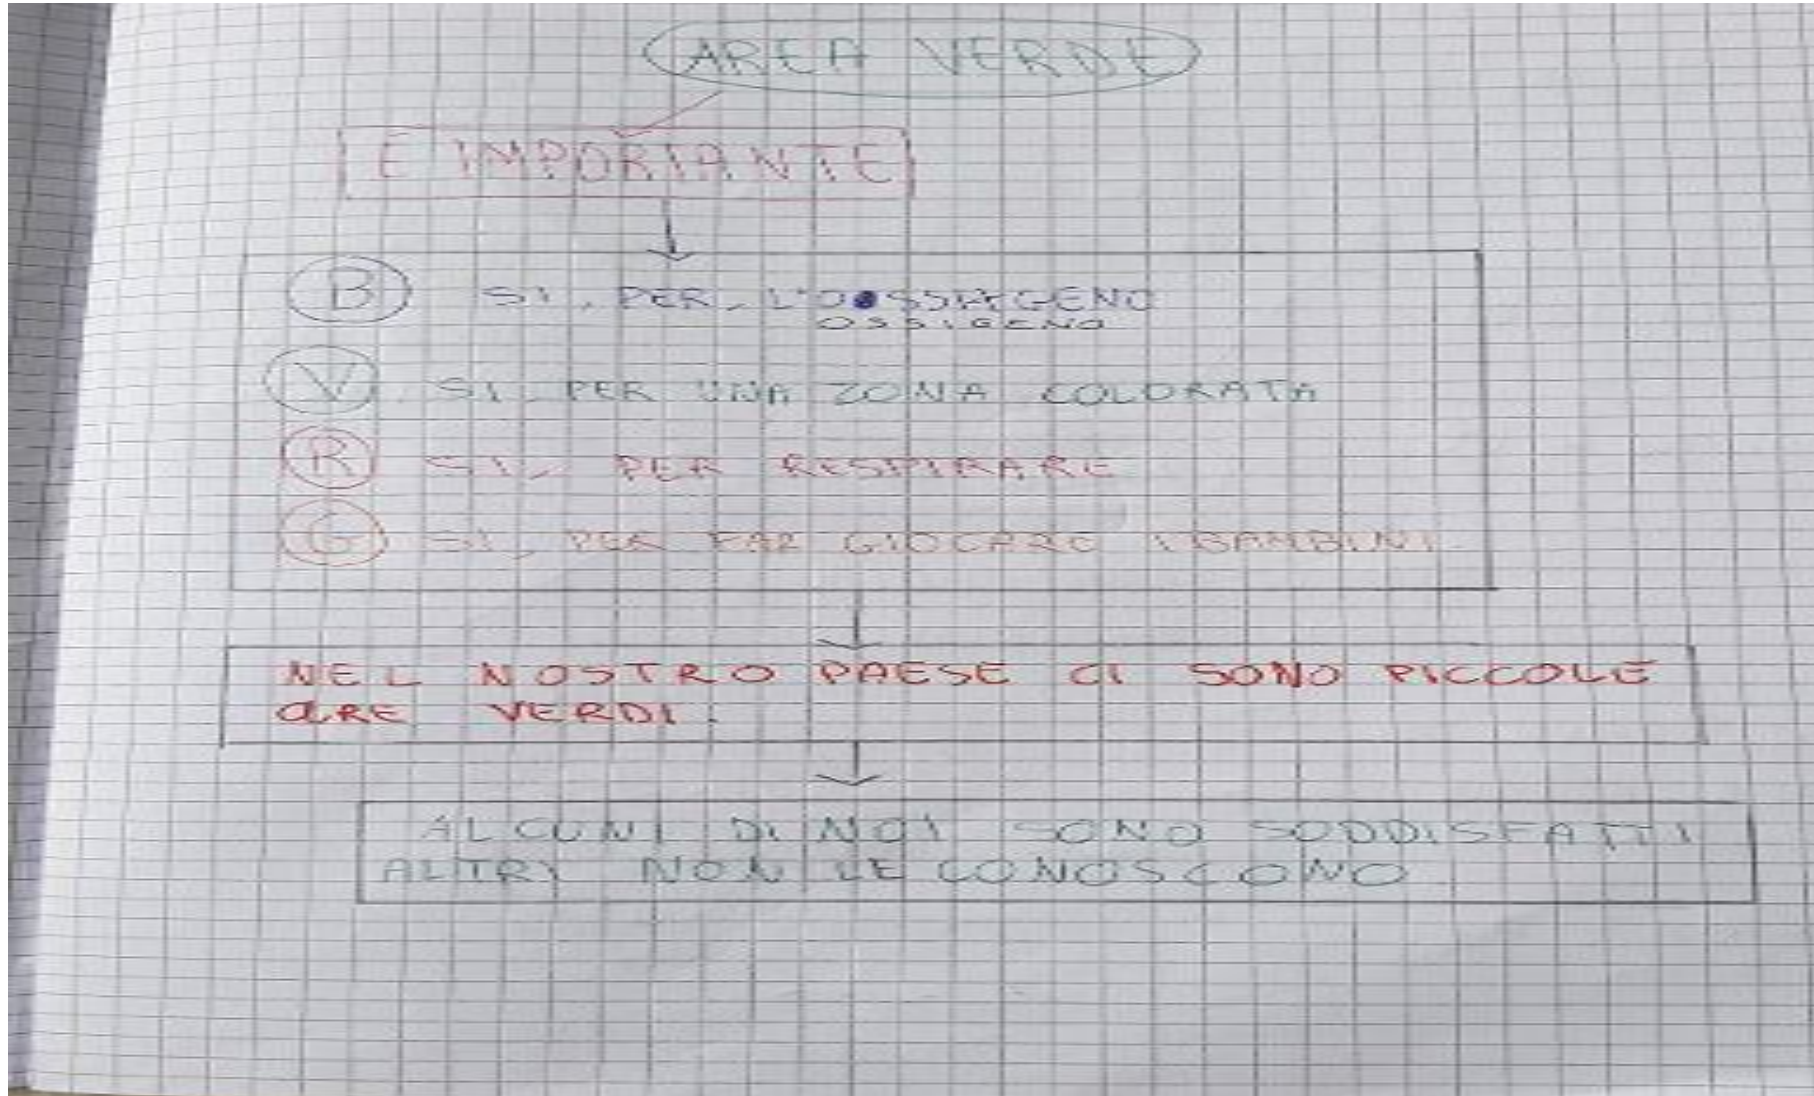 AREA VERDE
E IMPORTANTE
B SI, PER L'OSSIGENO
OSSIGENO
V SI, PER UNA ZONA COLORATA
R SI, PER RESPIRARE
G SI, PER FAR GIOCARE I BAMBINI.
NEL NOSTRO PAESE CI SONO PICCOLE
ARE VERDI.
ALCUNI DI NOI SONO SODDISFATTI
ALTRI NON LE CONOSCONO